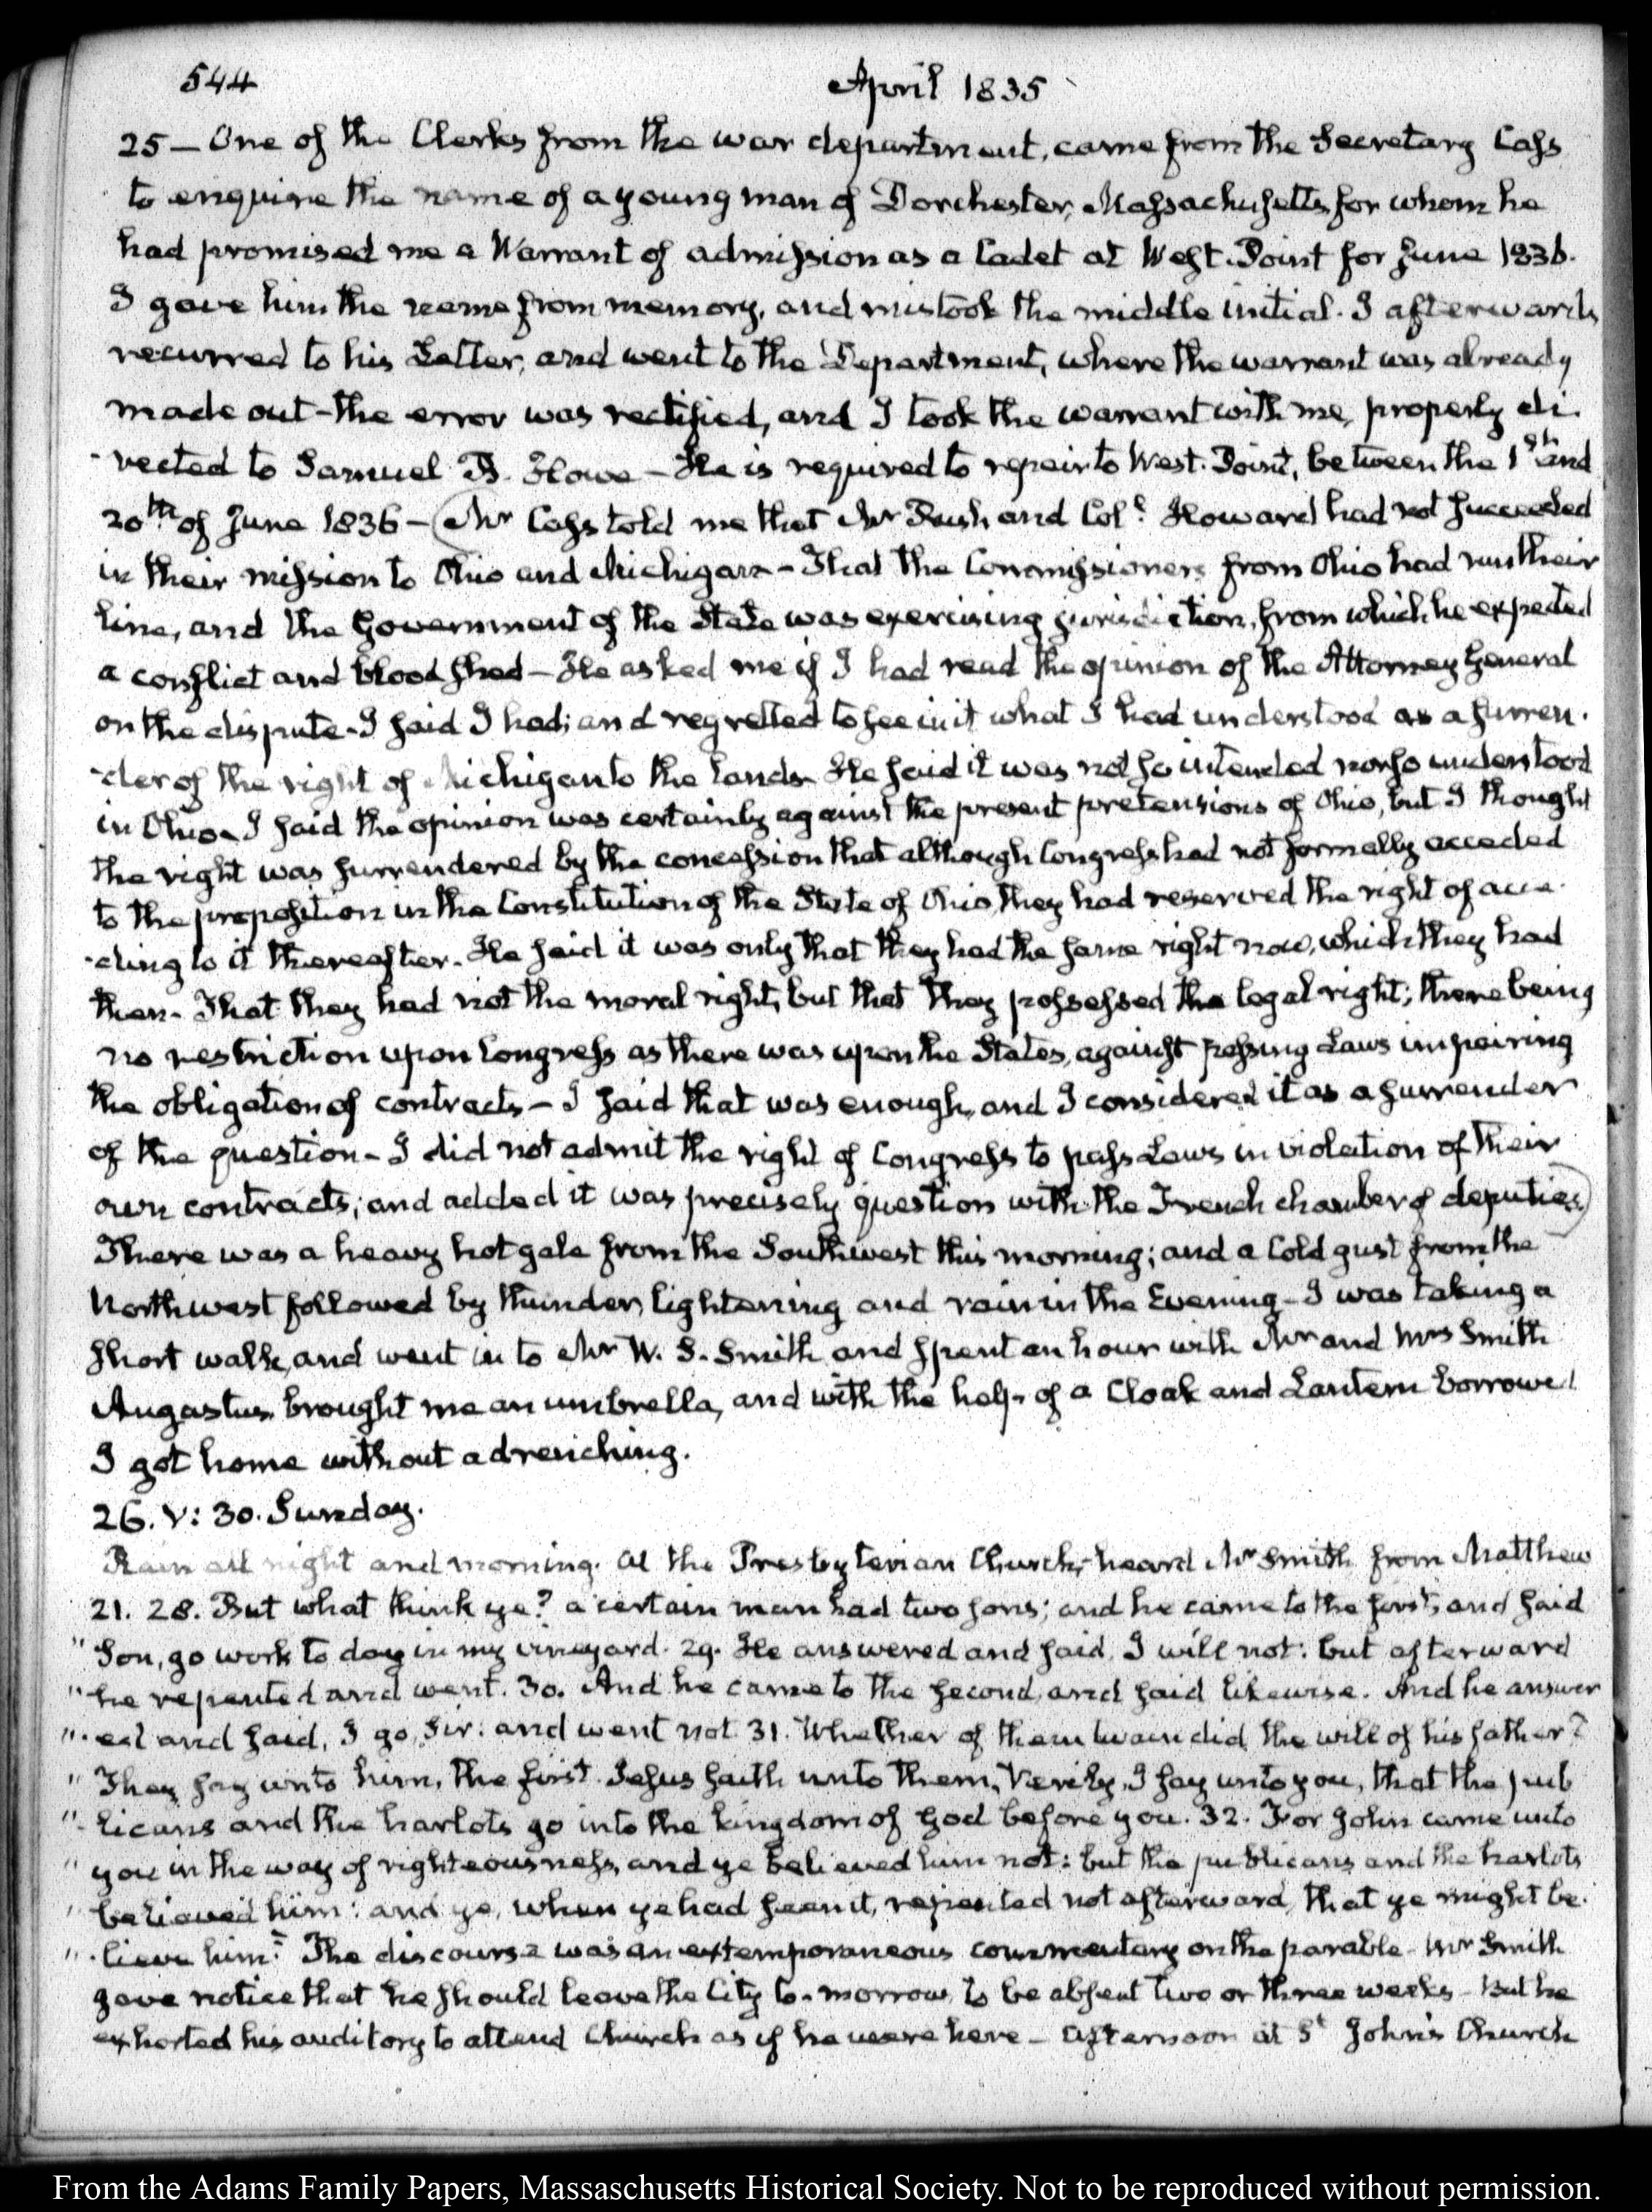 544
April 1835
25 — One of the Clerks from the war department, came from the Secretary Cass
to enquire the name of a young man of Dorchester, Massachusetts for whom he
had promised me a Warrant of admission as a Cadet at West-Point for June 1836.
I gave him the name from memory, and mistook the middle initial. I afterwards
recurred to his Letter, and went to the Department, where the warrant was already
made out - the error was rectified, and I took the warrant with me, properly di-
-rected to Samuel B. Howe — He is required to repair to West-Point, between the 1st and
20th of June 1836 — (Mr Cass told me that Mr Rush and Col. Howard had not succeeded
in their mission to Ohio and Michigan - That the Commissioners from Ohio had run their
line, and the Government of the State was exercising jurisdiction, from which he expected
a conflict and blood shed - He asked me if I had read the opinion of the Attorney General
on the dispute - I said I had; and regretted to see in it what I had understood as a surren-
-der of the right of Michigan to the lands. He said it was not so intended nor so understood
in Ohio - I said the opinion was certainly against the present pretensions of Ohio, but I thought
the right was surrendered by the concession that although Congress had not formally acceded
to the proposition in the Constitution of the State of Ohio, they had reserved the right of acce-
-ding to it thereafter. He said it was only that they had the same right now, which they had
then - That they had not the moral right, but that they possessed the legal right; there being
no restriction upon Congress as there was upon the States, against passing Laws impairing
the obligation of contracts - I said that was enough, and I considered it as a surrender
of the question - I did not admit the right of Congress to pass Laws in violation of their
own contracts; and added it was precisely question with the French chamber of deputies)
There was a heavy hot gale from the Southwest this morning; and a cold gust from the
Northwest followed by thunder, lightening and rain in the Evening - I was taking a
short walk, and went in to Mr W. S. Smith and spent an hour with Mr and Mrs Smith
Augustus brought me an umbrella, and with the help of a Cloak and Lantern borrowed
I got home without a drenching.
26. V: 30. Sunday.
Rain all night and morning. At the Presbyterian Church, heard Mr Smith from Matthew
21. 28. But what think ye? a certain man had two sons; and he came to the first, and said
" Son, go work to day in my vineyard. 29. He answered and said, I will not: but afterward
" he repented and went. 30. And he came to the second, and said likewise. And he answer
" -ed and said, I go, Sir: and went not. 31. Whether of them twain did the will of his father?
" They say unto him, the first. Jesus saith unto them, Verily, I say unto you, that the pub
" -licans and the harlots go into the kingdom of God before you. 32. For John came unto
" you in the way of righteousness, and ye believed him not: but the publicans and the harlots
" believed him: and ye, when ye had seen it, repented not afterward, that ye might be-
" -lieve him." The discourse was an extemporaneous commentary on the parable - Mr Smith
gave notice that he should leave the City to-morrow, to be absent two or three weeks - But he
exhorted his auditory to attend Church as if he were here - Afternoon at St John's Church
From the Adams Family Papers, Massachusetts Historical Society. Not to be reproduced without permission.